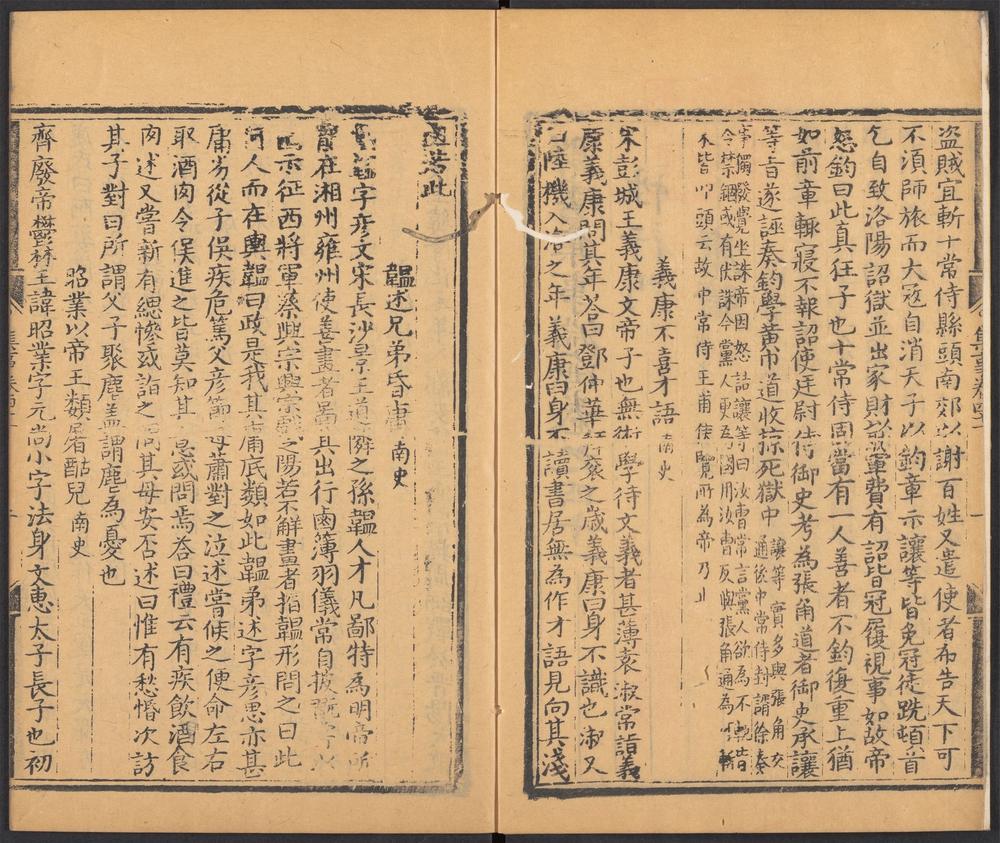 盗賊宜斬十常侍縣頭南郊以謝百姓又遣使者布告天下可
不須師旅而大冦自消天子以鈞章示讓等皆免冠徒跣頓首
乞自致洛陽詔獄並出家財以助軍費有詔皆冠履視事如故帝
怒鈞曰此真狂子也十常侍固當有一人善者不鈞復重上猶
如前章輒寢不報詔使廷尉侍御史考為張角道者御史承讓
等旨遂誣奏鈞學黄巾道收掠死獄中
讓等實多與張角交
通後中常侍封諝徐奏
事獨發覺坐誅帝因怒詰讓等曰汝曹常言黨人欲為不軌皆
令禁錮或有伏誅今黨人更為國用汝曹反與張角通為可斬
不皆叩頭云故中常侍王甫侯覽所為帝乃止
義康不喜才語 南史
宋彭城王義康文帝子也無術學待文義者甚薄袁淑常詣義
康義康問其年荅曰鄧仲華拜袞之歲義康曰身不識也淑又
曰陸機入洛之年義康曰身不讀書居無為作才語見向其淺
陋若此
韞述兄弟昏庸 南史
韞字彦文宋長沙景王道憐之孫韞人才凡鄙特為明帝所
寵在湘州雍州使善畫者圖其出行鹵簿羽儀常自披翫字以
示征西將軍蔡興宗興宗戲之陽若不解畫者指韞形問之曰此
何人而在輿韞曰政是我其庸底類如此韞弟述字彦思亦甚
庸劣從子俁疾危篤父彦節母蕭對之泣述嘗候之便命左右
取酒肉令俁進之皆莫知其意或問焉荅曰禮云有疾飲酒食
肉述又嘗新有緦慘或詣之問其母安否述曰惟有愁惛次訪
其子對曰所謂父子聚麀盖謂麀為憂也
昭業以帝王類屠酤兒 南史
齊廢帝鬱林王諱昭業字元尚小字法身文惠太子長子也初